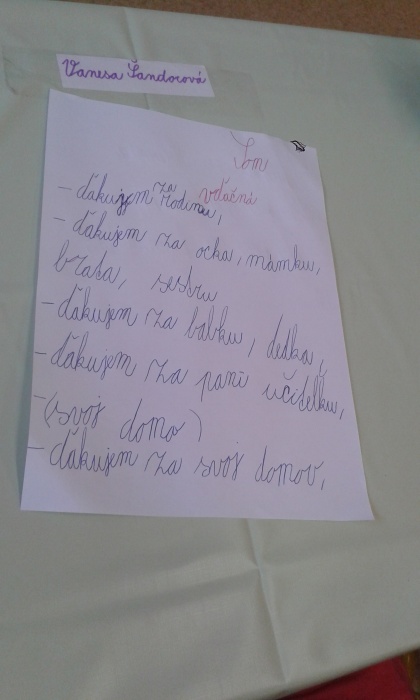 Vanesa Šandorová
Som
vďačná
– ďakujem za rodinu,
– ďakujem za ocka, mamku,
brata, sestru
– ďakujem za babku, dedka,
– ďakujem za pani učiteľku,
– (svoj domo)
– ďakujem za svoj domov,